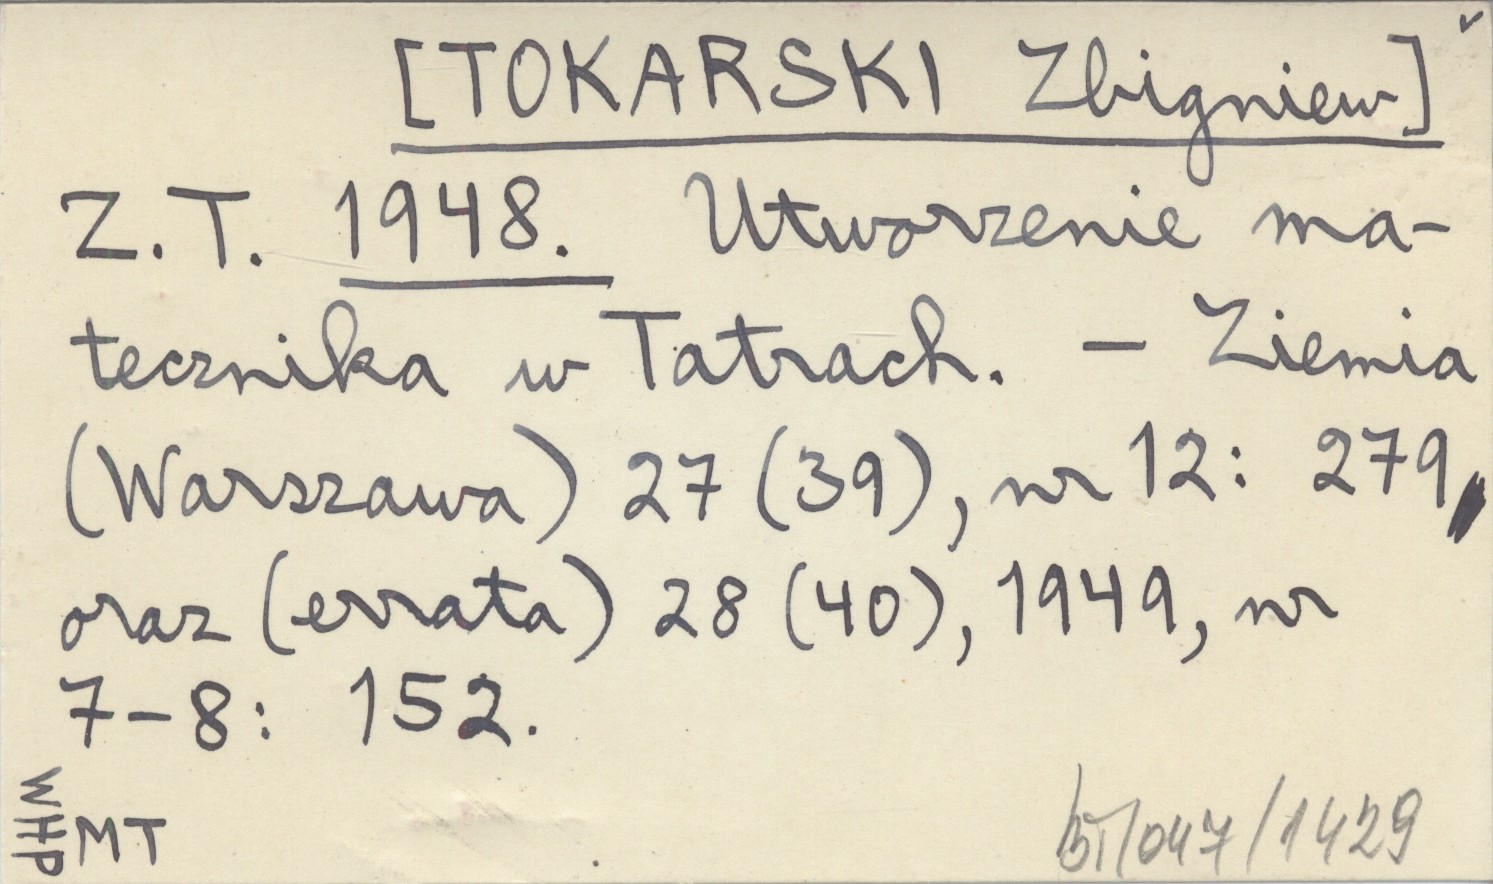 [TOKARSKI Zbigniew]
Z.T. 1948. Utworzenie ma-
tecznika w Tatrach. – Ziemia
(Warszawa) 27 (39), nr 12: 279,
oraz (errata) 28 (40), 1949, nr
7–8: 152.
WHP
MT
BT/047/1429